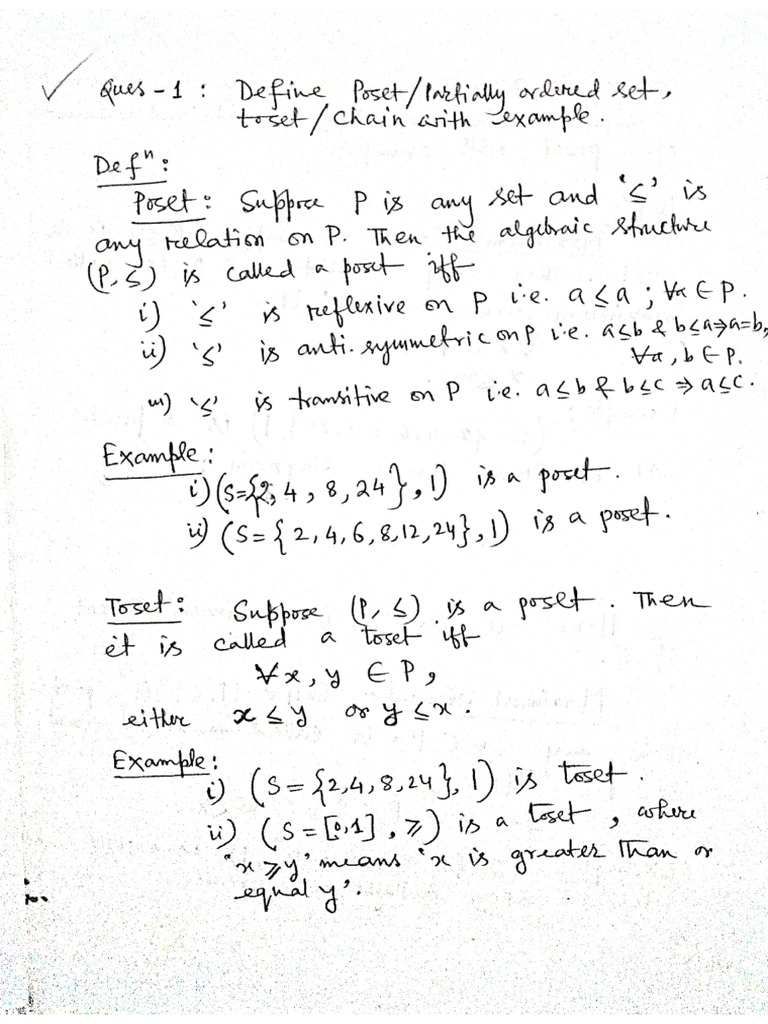 Ques - 1 : Define Poset/Partially ordered set,
toset/chain with example.
Defⁿ:
Poset: Suppose P is any set and '≤' is
any relation on P. Then the algebraic structure
(P, ≤) is called a poset iff
i) '≤' is reflexive on P i.e. a ≤ a ; ∀a ∈ P.
ii) '≤' is anti. symmetric on P i.e. a≤b & b≤a⇒a=b,
∀a, b ∈ P.
iii) '≤' is transitive on P i.e. a≤b & b≤c ⇒ a≤c.
Example:
i) (S={2, 4, 8, 24}, 1) is a poset.
ii) (S = {2, 4, 6, 8, 12, 24}, 1) is a poset.
Toset: Suppose (P, ≤) is a poset. Then
it is called a toset iff
∀ x, y ∈ P,
either x ≤ y or y ≤ x.
Example:
i) (S = {2, 4, 8, 24}, 1) is toset.
ii) (S = [0,1], ≥) is a toset, where
'x ≥ y' means 'x is greater than or
equal y'.